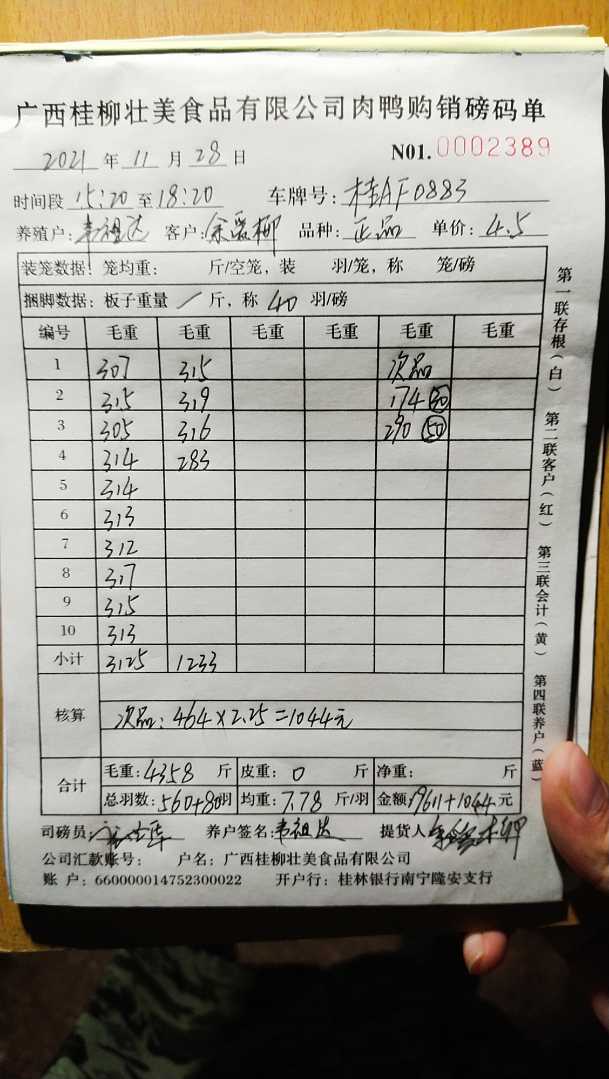 广西桂柳壮美食品有限公司肉鸭购销磅码单
2021 年 11 月 28 日 N01. 0002389
时间段 15:20 至 18:20 车牌号: 桂AF0883
养殖户: 韦祖达 客户: 余爱柳 品种: 正品 单价: 4.5
装笼数据: 笼均重: 斤/空笼, 装 羽/笼, 称 笼/磅
捆脚数据: 板子重量 / 斤, 称 40 羽/磅
编号 毛重 毛重 毛重 毛重 毛重 毛重
1 307 315 次品
2 315 319 174 30
3 305 316 290 50
4 314 283
5 314
6 313
7 312
8 317
9 315
10 313
小计 3125 1233
核算 次品: 464×2.25=1044元
合计 毛重: 4358 斤 皮重: 0 斤 净重: 斤
总羽数: 560+80羽 均重: 7.78 斤/羽 金额: 19611+1044 元
司磅员: 养户签名: 韦祖达 提货人:
公司汇款账号: 户名: 广西桂柳壮美食品有限公司
账 户: 660000014752300022 开户行: 桂林银行南宁隆安支行
第一联存根(白) 第二联客户(红) 第三联会计(黄) 第四联养户(蓝)